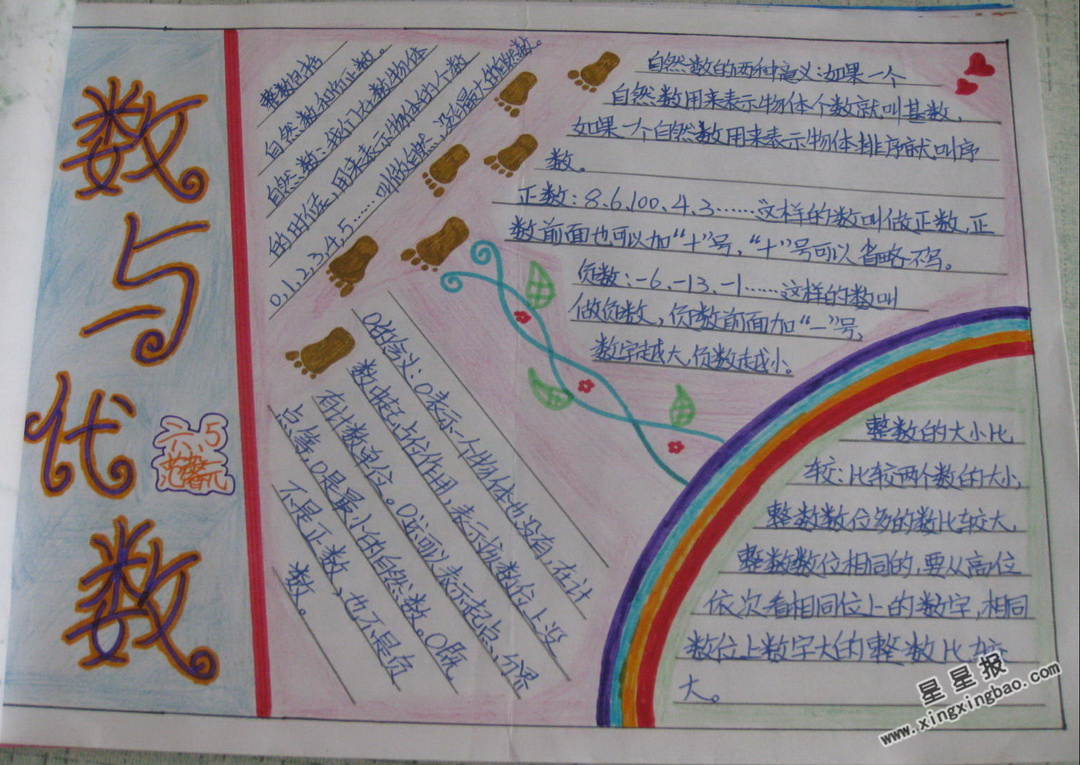 数与代数
六.5
整数包括
自然数和所正数。
自然数:我们在数物体
的时候,用来表示物体的个数
0,1,2,3,4,5……叫做自然,没有最大的自然数。
自然数的两种意义:如果一个
自然数用来表示物体个数就叫基数,
如果一个自然数用来表示物体排序就叫序
数。
正数:8.6.100、4、3……这样的数叫做正数,正
数前面也可以加“+”号,“+”号可以省略不写。
负数:-6、-13、-1……这样的数叫
做负数,负数前面加“-”号,
数字越大,负数越小。
0的含义:0表示一个物体也没有,在计
数中起占位作用,表示该数位上没
有计数单位。0还可以表示起点,分界
点等,0是最小的自然数。0既
不是正数,也不是负
数。
整数的大小比
较:比较两个数的大小,
整数数位多的数比较大,
整数数位相同的,要从高位
依次看相同位上的数字,相同
数位上数字大的整数比较
大。
星星报
www.xingxingbao.com